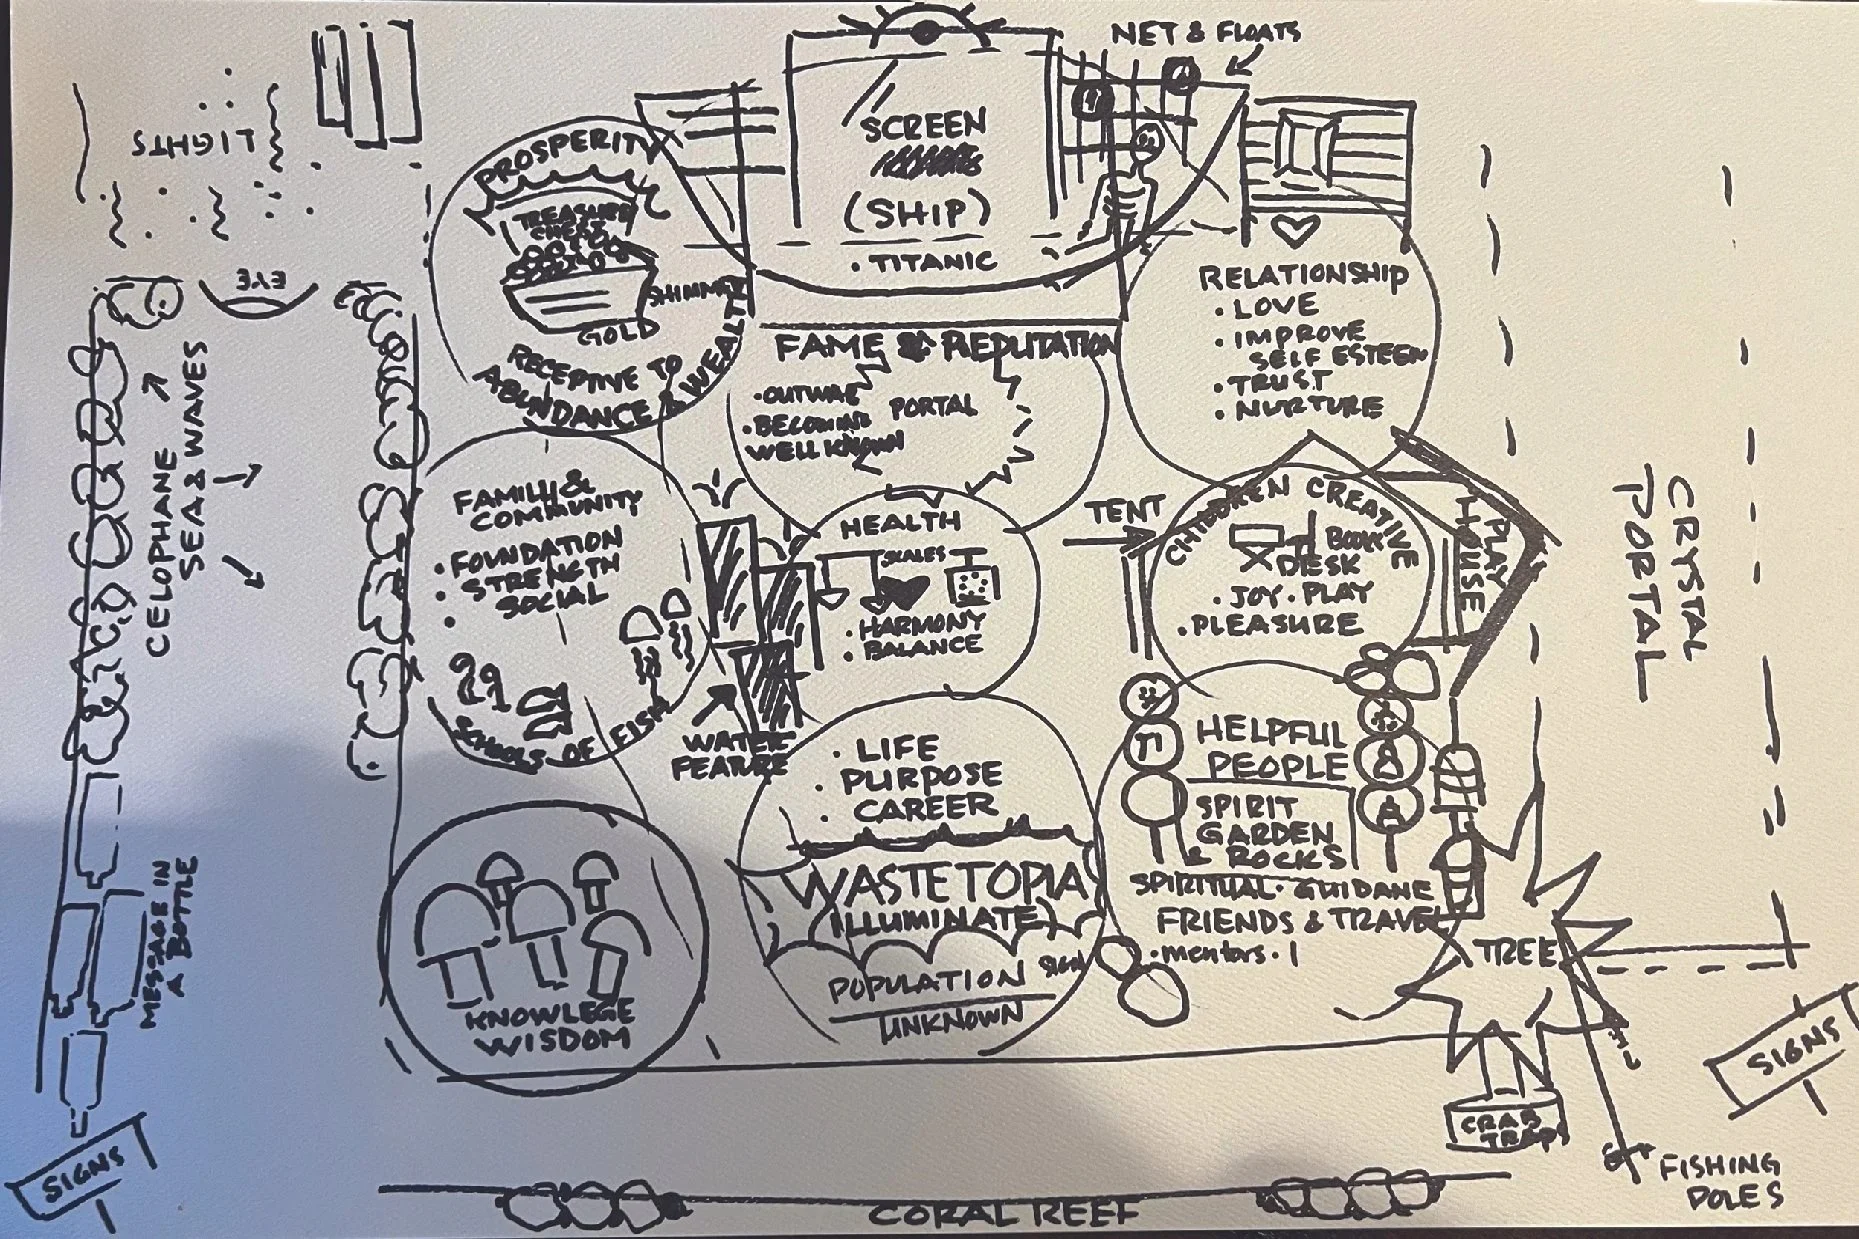 NET & FLOATS
LIGHTS
SCREEN
(SHIP)
• TITANIC
PROSPERITY
TREASURE
CHEST
SHIMMER
GOLD
RECEPTIVE TO
ABUNDANCE & WEALTH
EYE
CELOPHANE
SEA & WAVES
FAME & REPUTATION
• OUTWAR
• BECOMING
WELL KNOWN
PORTAL
RELATIONSHIP
• LOVE
• IMPROVE
SELF ESTEEM
• TRUST
• NURTURE
FAMILY &
COMMUNITY
• FOUNDATION
• STRENGTH
• SOCIAL
SCHOOLS OF FISH
WATER
FEATURE
HEALTH
SCALES
• HARMONY
• BALANCE
TENT
CHILDREN CREATIVE
BOOK
DESK
• JOY • PLAY
• PLEASURE
PLAY
HOUSE
CRYSTAL
PORTAL
• LIFE
PURPOSE
• CAREER
WASTETOPIA
(ILLUMINATE)
POPULATION
SIGN
UNKNOWN
HELPFUL
PEOPLE
SPIRIT
GARDEN
& ROCKS
SPIRITUAL • GUIDANE
FRIENDS & TRAVEL
• mentors • I
TREE
KNOWLEGE
WISDOM
MESSAGE IN
A BOTTLE
SIGNS
SIGNS
CRAB
TRAPS
FISHING
POLES
CORAL REEF